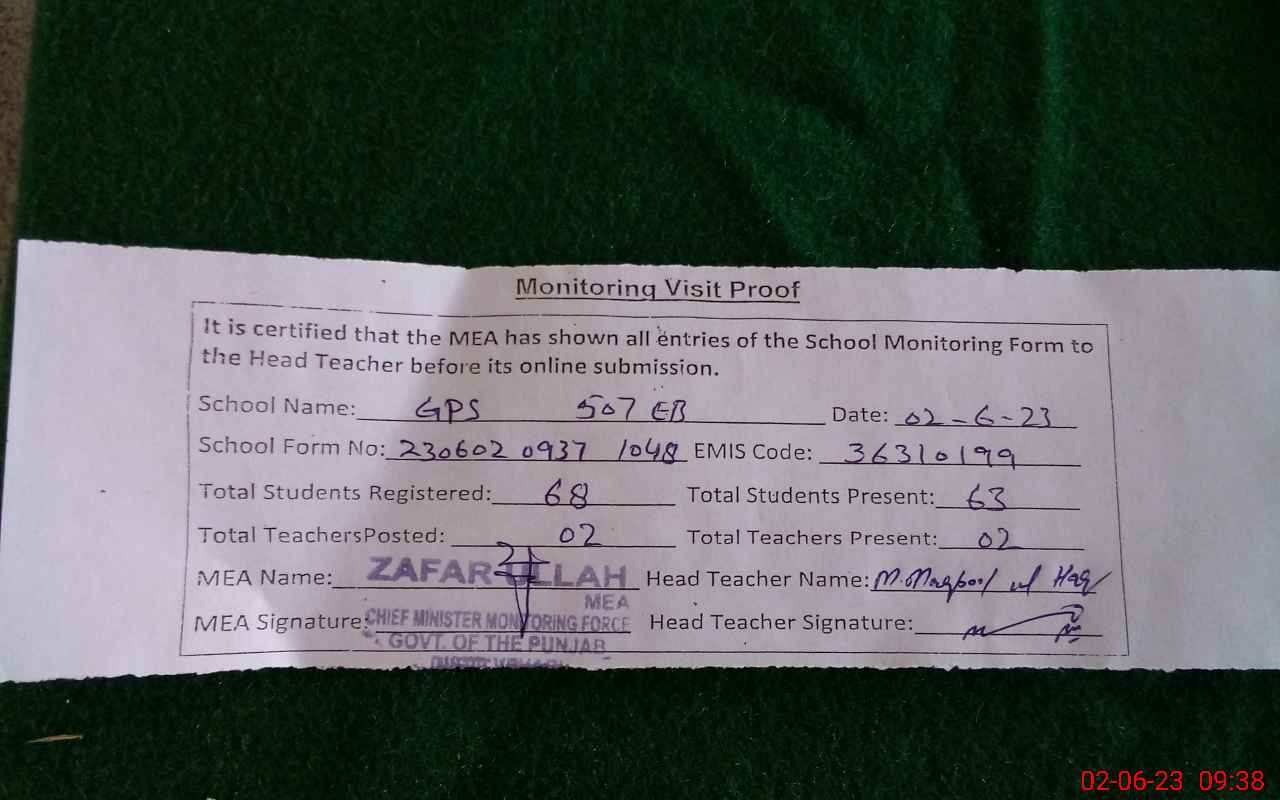 Monitoring Visit Proof
It is certified that the MEA has shown all entries of the School Monitoring Form to
the Head Teacher before its online submission.
School Name: GPS 507 EB Date: 02-6-23
School Form No: 230602 0937 1048 EMIS Code: 36310199
Total Students Registered: 68 Total Students Present: 63
Total TeachersPosted: 02 Total Teachers Present: 02
MEA Name: ZAFAR ULLAH Head Teacher Name: M. Maqbool ul Haq
MEA
MEA Signature: CHIEF MINISTER MONITORING FORCE Head Teacher Signature:
GOVT. OF THE PUNJAB
02-06-23 09:38